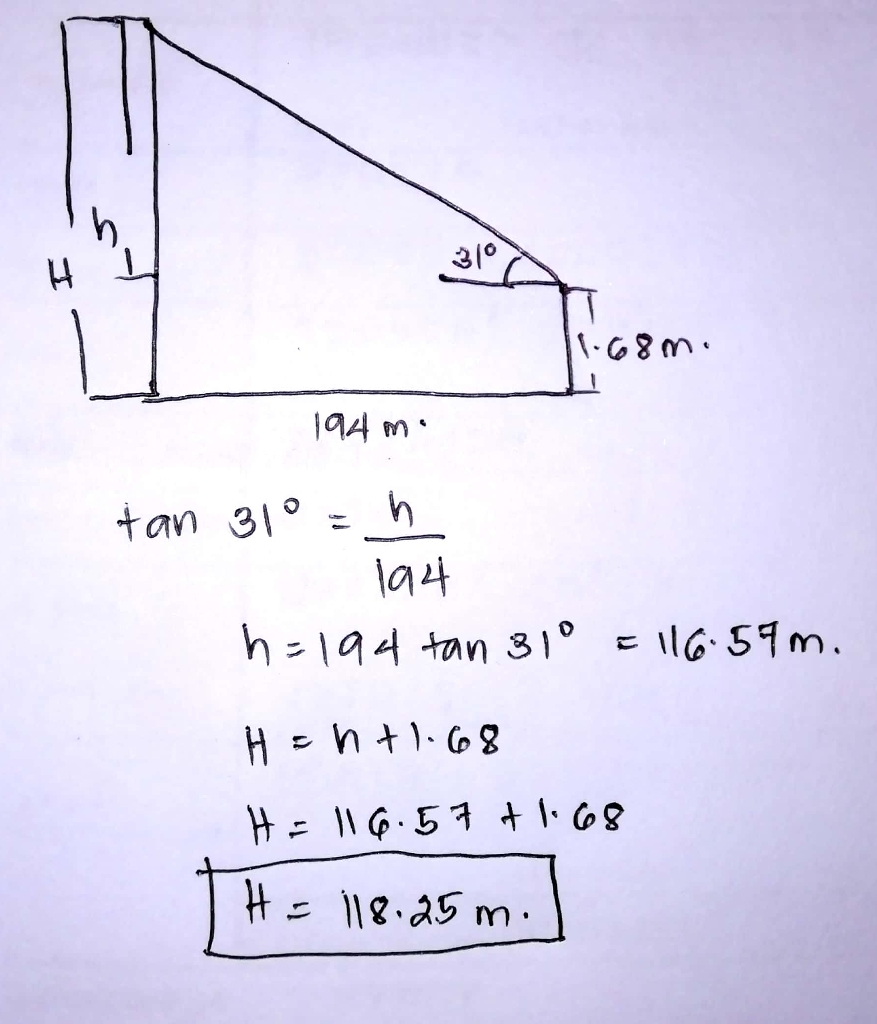 h
H
31°
1.68m.
194 m.
tan 31° = h
194
h = 194 tan 31° = 116.57m.
H = h + 1.68
H = 116.57 + 1.68
H = 118.25 m.